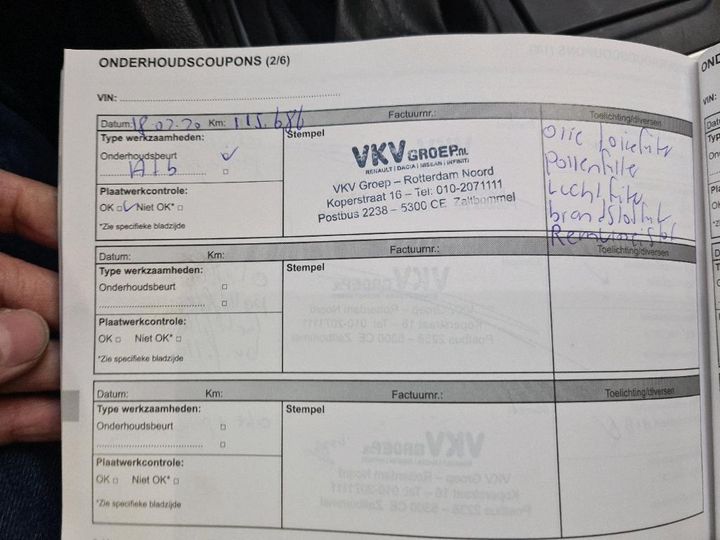 ONDERHOUDSCOUPONS (2/6)
VIN:
Datum: 18.02.20 Km: 115.686 Factuurnr.: Toelichting/diversen
Type werkzaamheden: Stempel
Onderhoudsbeurt
A+b
Plaatwerkcontrole:
OK Niet OK*
*Zie specifieke bladzijde
VKV GROEP.NL
RENAULT | DACIA | NISSAN | INFINITI
VKV Groep – Rotterdam Noord
Koperstraat 16 – Tel: 010-2071111
Postbus 2238 – 5300 CE Zaltbommel
olie / oliefilter
Pollenfilter
Luchtfilter
brandstoffilt.
Remvloeistof
Datum: Km: Factuurnr.: Toelichting/diversen
Type werkzaamheden: Stempel
Onderhoudsbeurt
Plaatwerkcontrole:
OK Niet OK*
*Zie specifieke bladzijde
Datum: Km: Factuurnr.: Toelichting/diversen
Type werkzaamheden: Stempel
Onderhoudsbeurt
Plaatwerkcontrole:
OK Niet OK*
*Zie specifieke bladzijde